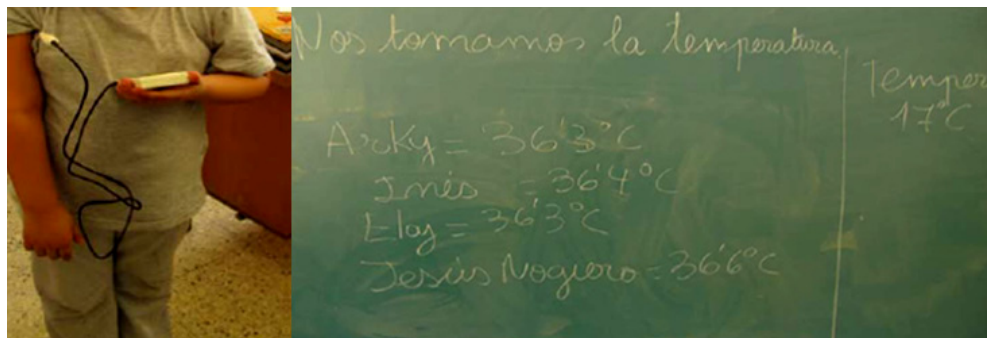 Nos tomamos la temperatura
Arky = 36'3°C
Inés = 36'4°C
Eloy = 36'3°C
Jesús Noguero = 36'6°C
Temper
17°C